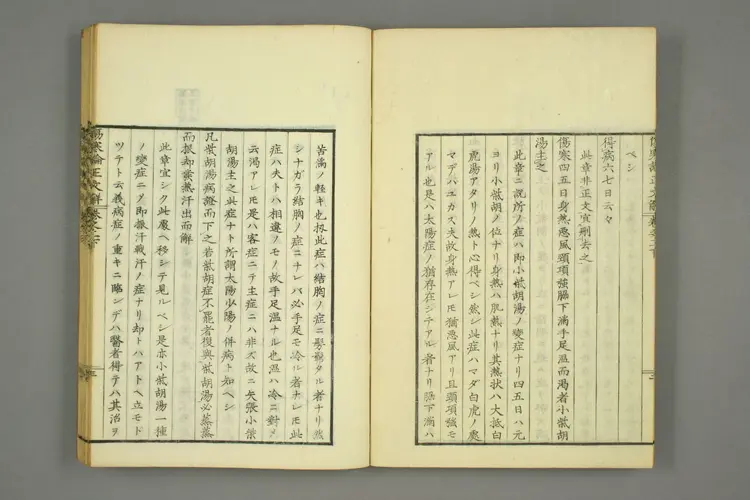 ベシ
得病六七日云々
此章非正文宜刪去之
傷寒四五日身熱悪風頸項強脇下満手足温而渇者小柴胡
湯主之
此章ニ説所ノ症ハ即小柴胡湯ノ変症ナリ四五日ハ元
ヨリ小柴胡ノ位ナリ身熱ハ肌熱ナリ其熱状ハ大抵白
虎湯アタリノ熱ト心得ベシ此症ハマダ白虎ノ處
マデハユカヌ夫故身熱アレ𪜈猶悪風アリ且頸項強モ
アル也是ハ太陽症ノ猶存在シテアル者ナリ脇下満ハ
苦満ノ軽キ也扨此症ハ結胸ノ症ニ髣髴タル者ナリ然
シナガラ結胸ノ症ニナレバ必手足モ冷ル者ナレ𪜈此
症ハ夫トハ相違ノモノ故手足温ナル也温ハ冷ニ對メ
云渇アレ𪜈是ハ客症ニテ主症ニハ非ズ故ニ矢張小柴
胡湯主之此症ナト所謂太陽少陽ノ併病ト知ベシ
凡柴胡湯病證而下之若柴胡症不罷者復與柴胡湯必蒸蒸
而振却發熱汗出而解
此章宜シク此處ヘ移シテ見ルベシ是亦小柴胡湯一種
ノ変症ニメ即振汗戦汗ノ症ナリ却トハアトヘ立モド
ツテト云義病症ノ重キニ臨ンデハ醫者得テハ其治ヲ
傷寒論正文解